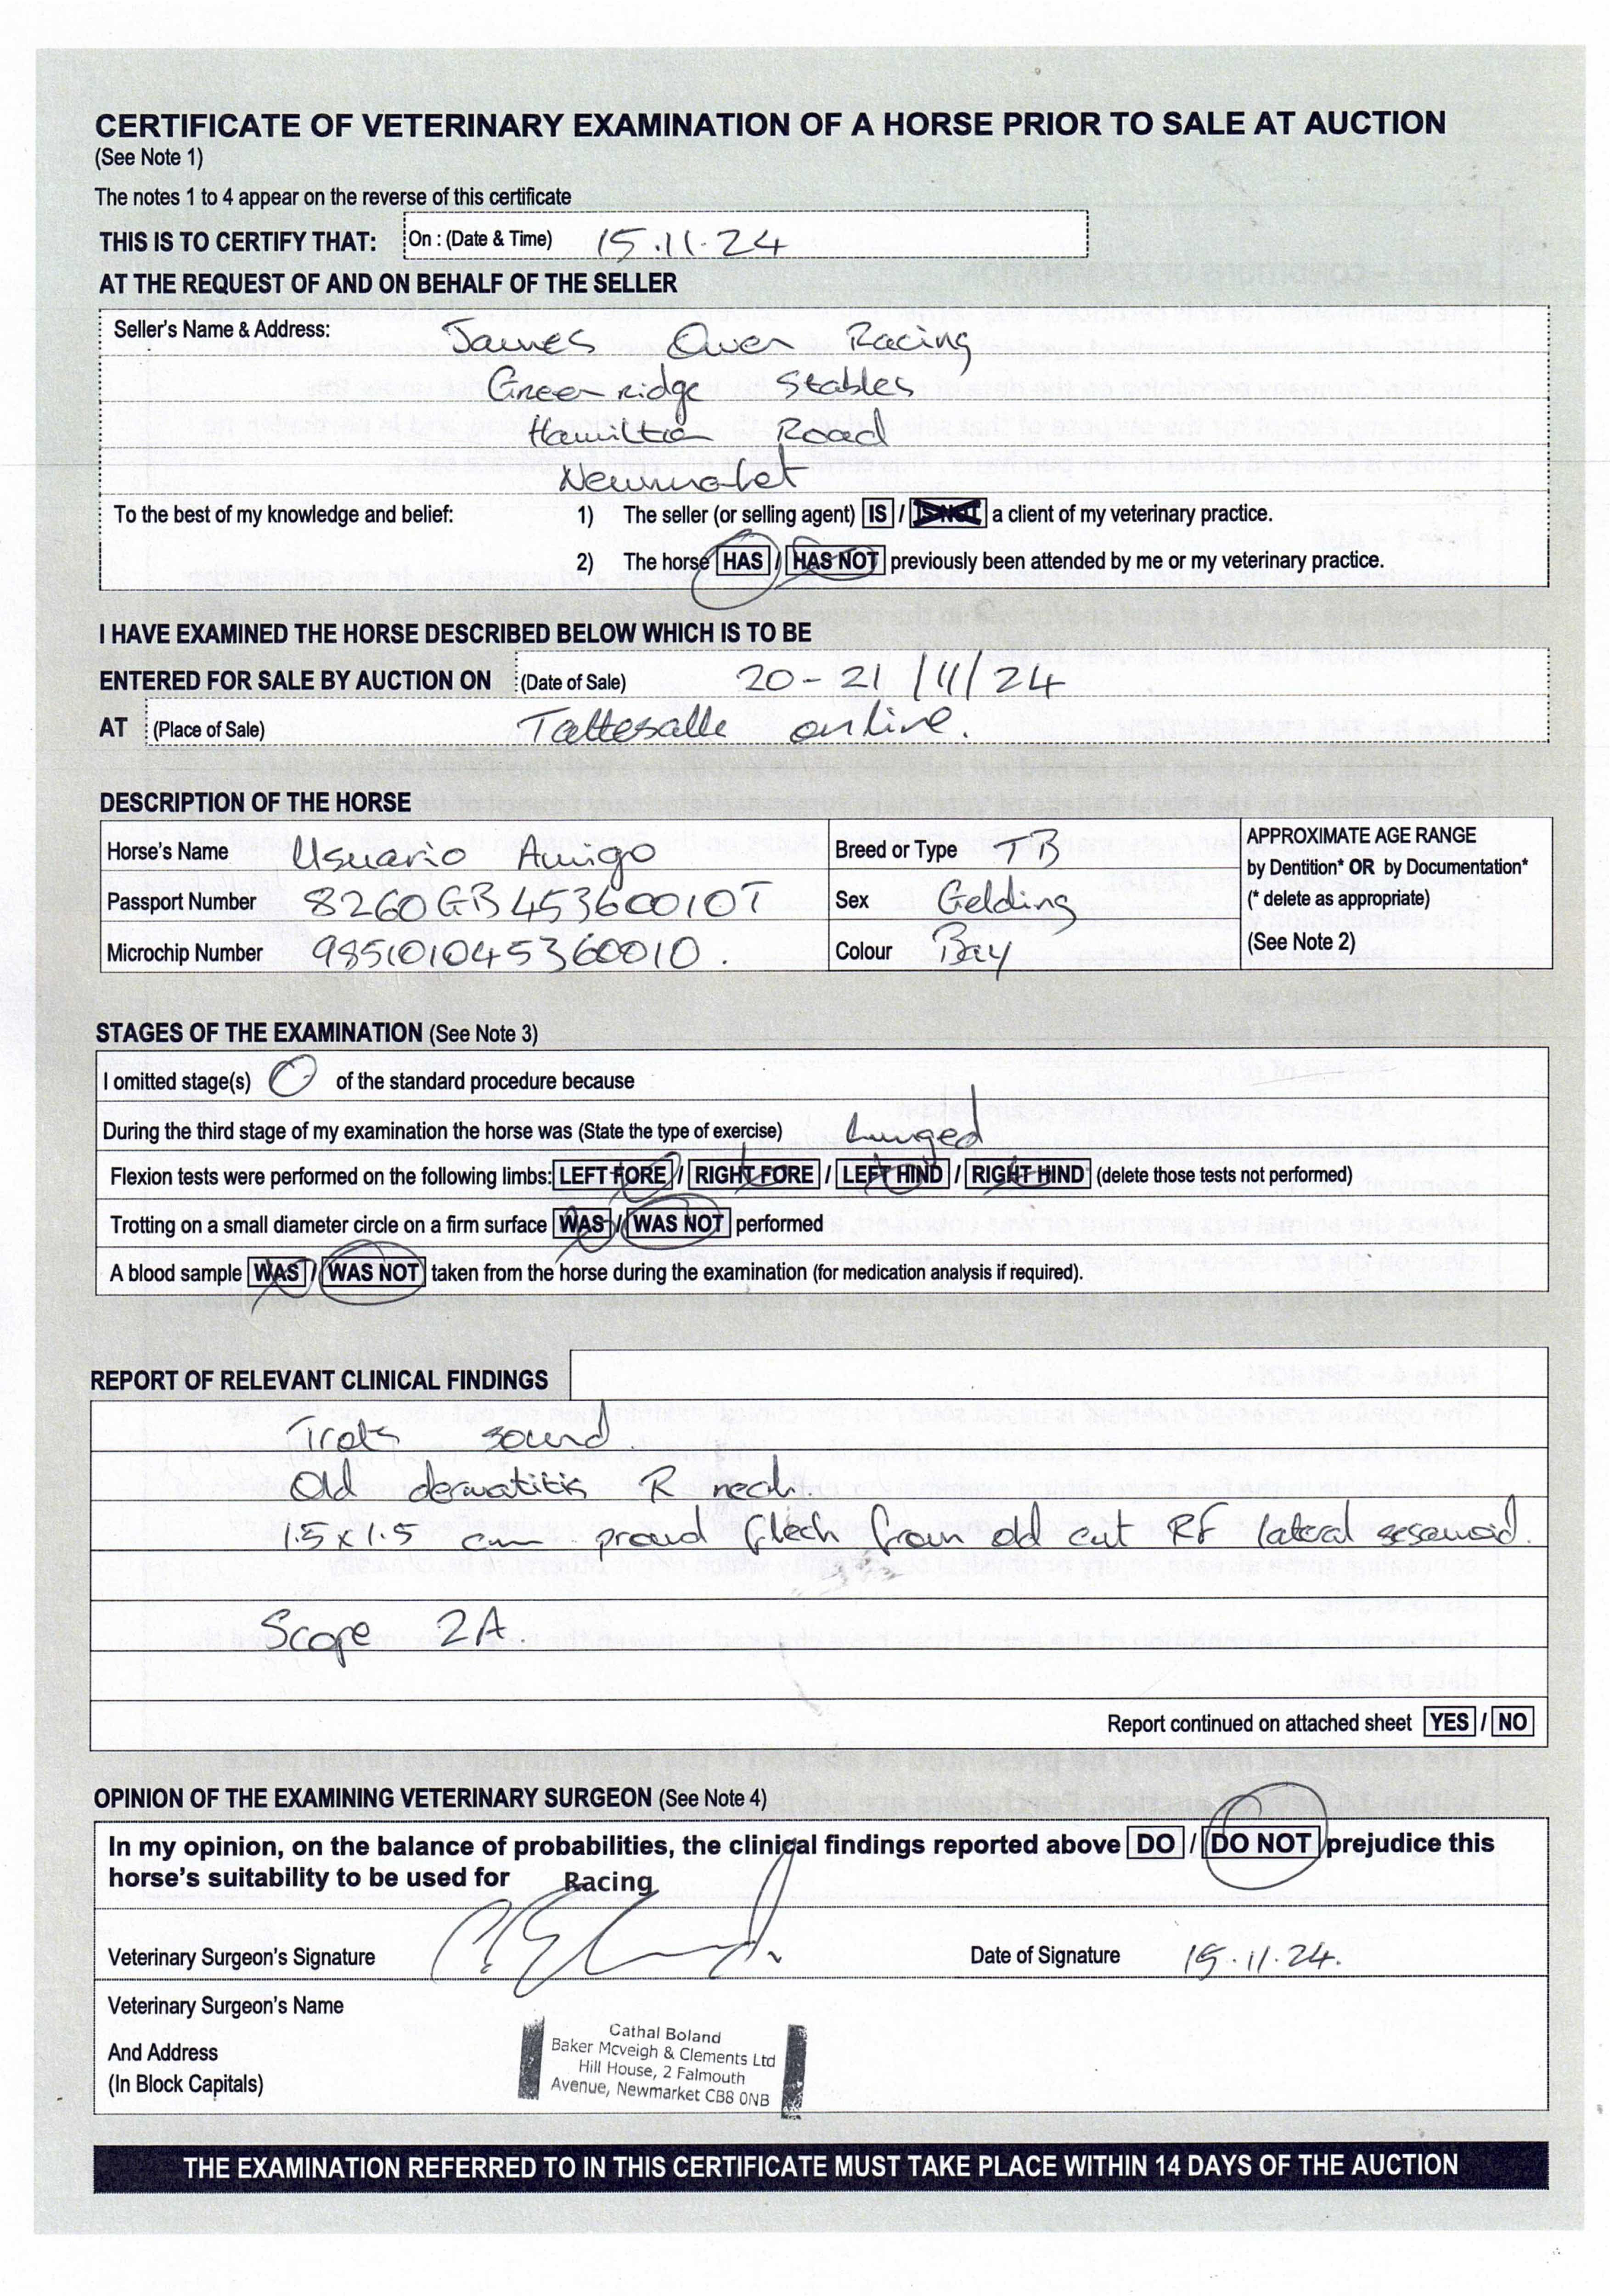 CERTIFICATE OF VETERINARY EXAMINATION OF A HORSE PRIOR TO SALE AT AUCTION
(See Note 1)
The notes 1 to 4 appear on the reverse of this certificate
THIS IS TO CERTIFY THAT: On : (Date & Time) 15.11.24
AT THE REQUEST OF AND ON BEHALF OF THE SELLER
Seller's Name & Address: James Owen Racing
Green ridge Stables
Hamilton Road
Newmarket
To the best of my knowledge and belief: 1) The seller (or selling agent) IS / IS NOT a client of my veterinary practice.
2) The horse HAS / HAS NOT previously been attended by me or my veterinary practice.
I HAVE EXAMINED THE HORSE DESCRIBED BELOW WHICH IS TO BE
ENTERED FOR SALE BY AUCTION ON (Date of Sale) 20-21/11/24
AT (Place of Sale) Tattesalle online.
DESCRIPTION OF THE HORSE
Horse's Name Usuario Amigo Breed or Type TB APPROXIMATE AGE RANGE
by Dentition* OR by Documentation*
Passport Number 8260GB45360010T Sex Gelding (* delete as appropriate)
Microchip Number 985101045360010. Colour Bay (See Note 2)
STAGES OF THE EXAMINATION (See Note 3)
I omitted stage(s) 0 of the standard procedure because
During the third stage of my examination the horse was (State the type of exercise) Lunged
Flexion tests were performed on the following limbs: LEFT FORE / RIGHT FORE / LEFT HIND / RIGHT HIND (delete those tests not performed)
Trotting on a small diameter circle on a firm surface WAS / WAS NOT performed
A blood sample WAS / WAS NOT taken from the horse during the examination (for medication analysis if required).
REPORT OF RELEVANT CLINICAL FINDINGS
Trots sound.
Old dermatitis R neck.
1.5 x 1.5 cm proud flech from old cut RF lateral sesamoid.
Scope 2A.
Report continued on attached sheet YES / NO
OPINION OF THE EXAMINING VETERINARY SURGEON (See Note 4)
In my opinion, on the balance of probabilities, the clinical findings reported above DO / DO NOT prejudice this
horse's suitability to be used for Racing
Veterinary Surgeon's Signature Date of Signature 15.11.24.
Veterinary Surgeon's Name
And Address
(In Block Capitals)
Cathal Boland
Baker Mcveigh & Clements Ltd
Hill House, 2 Falmouth
Avenue, Newmarket CB8 0NB
THE EXAMINATION REFERRED TO IN THIS CERTIFICATE MUST TAKE PLACE WITHIN 14 DAYS OF THE AUCTION